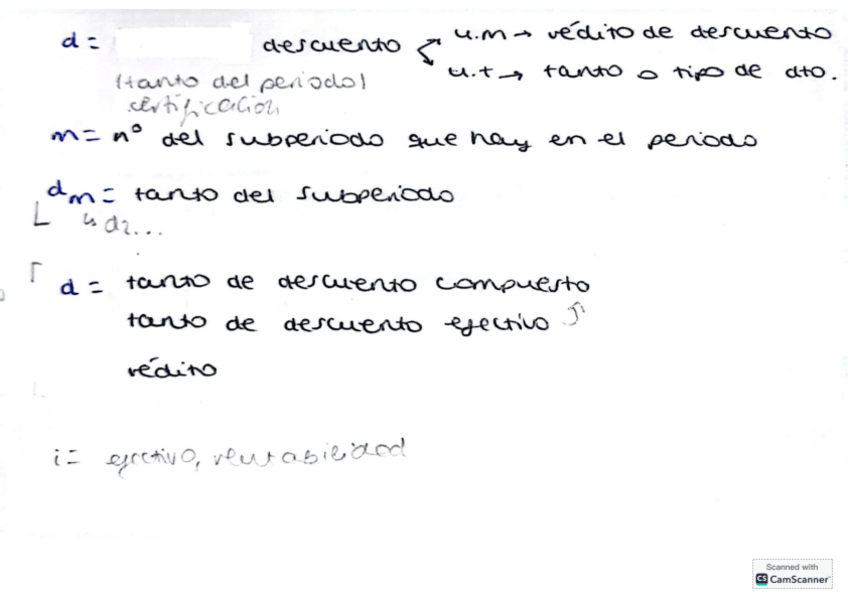 d = descuento u.m → rédito de descuento
u.t → tanto o tipo de dto.
(tanto del periodo)
certificación
m = nº del subperiodo que hay en el periodo
dm = tanto del subperiodo
↳ d2...
d = tanto de descuento compuesto
tanto de descuento efectivo
rédito
i = efectivo, rentabilidad
Scanned with
CS CamScanner